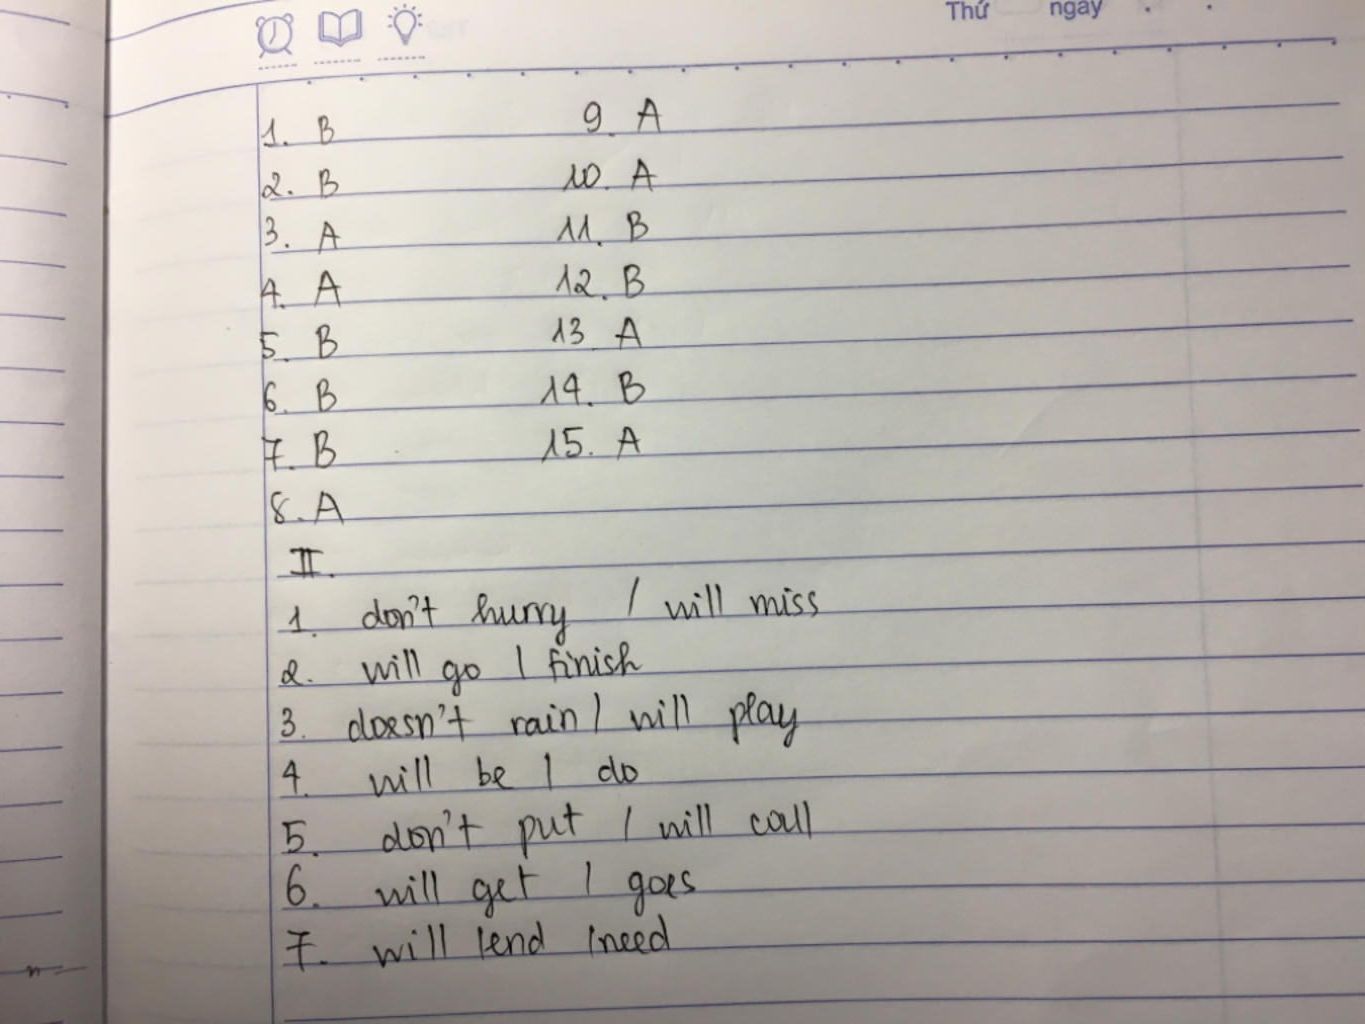 Thứ ngày . .
1. B 9. A
2. B 10. A
3. A 11. B
4. A 12. B
5. B 13 A
6. B 14. B
7. B 15. A
8. A
II.
1. don't hurry / will miss
2. will go / finish
3. doesn't rain / will play
4. will be / do
5. don't put / will call
6. will get / goes
7. will lend / need